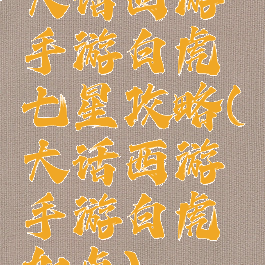 大话西游
手游白虎
七星攻略(
大话西游
手游白虎